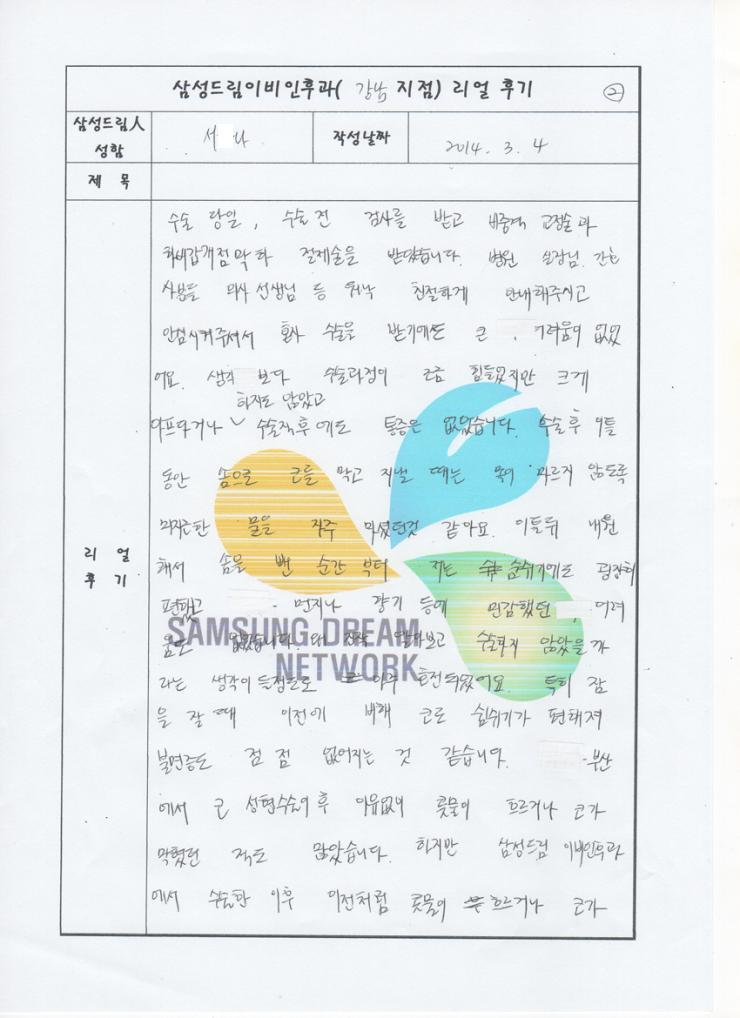 삼성드림이비인후과( 강남 지점) 리얼 후기 ②
삼성드림人 성함 서 나 작성날짜 2014. 3. 4
제 목
리 얼 후 기
수술 당일, 수술 전 검사를 받고 비중격 교정술과
절제술을 받았습니다. 병원 실장님, 간호
사분들 의사 선생님 등 워낙 친절하게 안내해주시고
안심시켜주셔서 혼자 수술을 받기에도 큰 어려움이 없었
어요. 생각 보다 수술과정이 조금 힘들었지만 크게
하지도 않았고
아프다거나 ∨ 수술직후에도 통증은 없었습니다. 수술후 이틀
동안 솜으로 코를 막고 지낼 때는 목이 마르지 않도록
미지근한 물을 자주 마셨던것 같아요. 이틀뒤 내원
해서 솜을 뺀 순간 부터 저는 숨쉬기에도 굉장히
편했고 먼지나 향기 등에 민감했던 어려
움도 없었습니다. 왜 진작 수술하지 않았을까
라는 생각이 들정도로 아주 호전되었어요. 특히 잠
을 잘 때 이전에 비해 코로 숨쉬기가 편해져
불면증도 점점 없어지는 것 같습니다. 부산
에서 코 성형수술이후 이유없이 콧물이 흐르거나 코가
막혔던 적도 많았습니다. 하지만 삼성드림 이비인후과
에서 수술한 이후 이전처럼 콧물이 흐르거나 코가
SAMSUNG DREAM
NETWORK